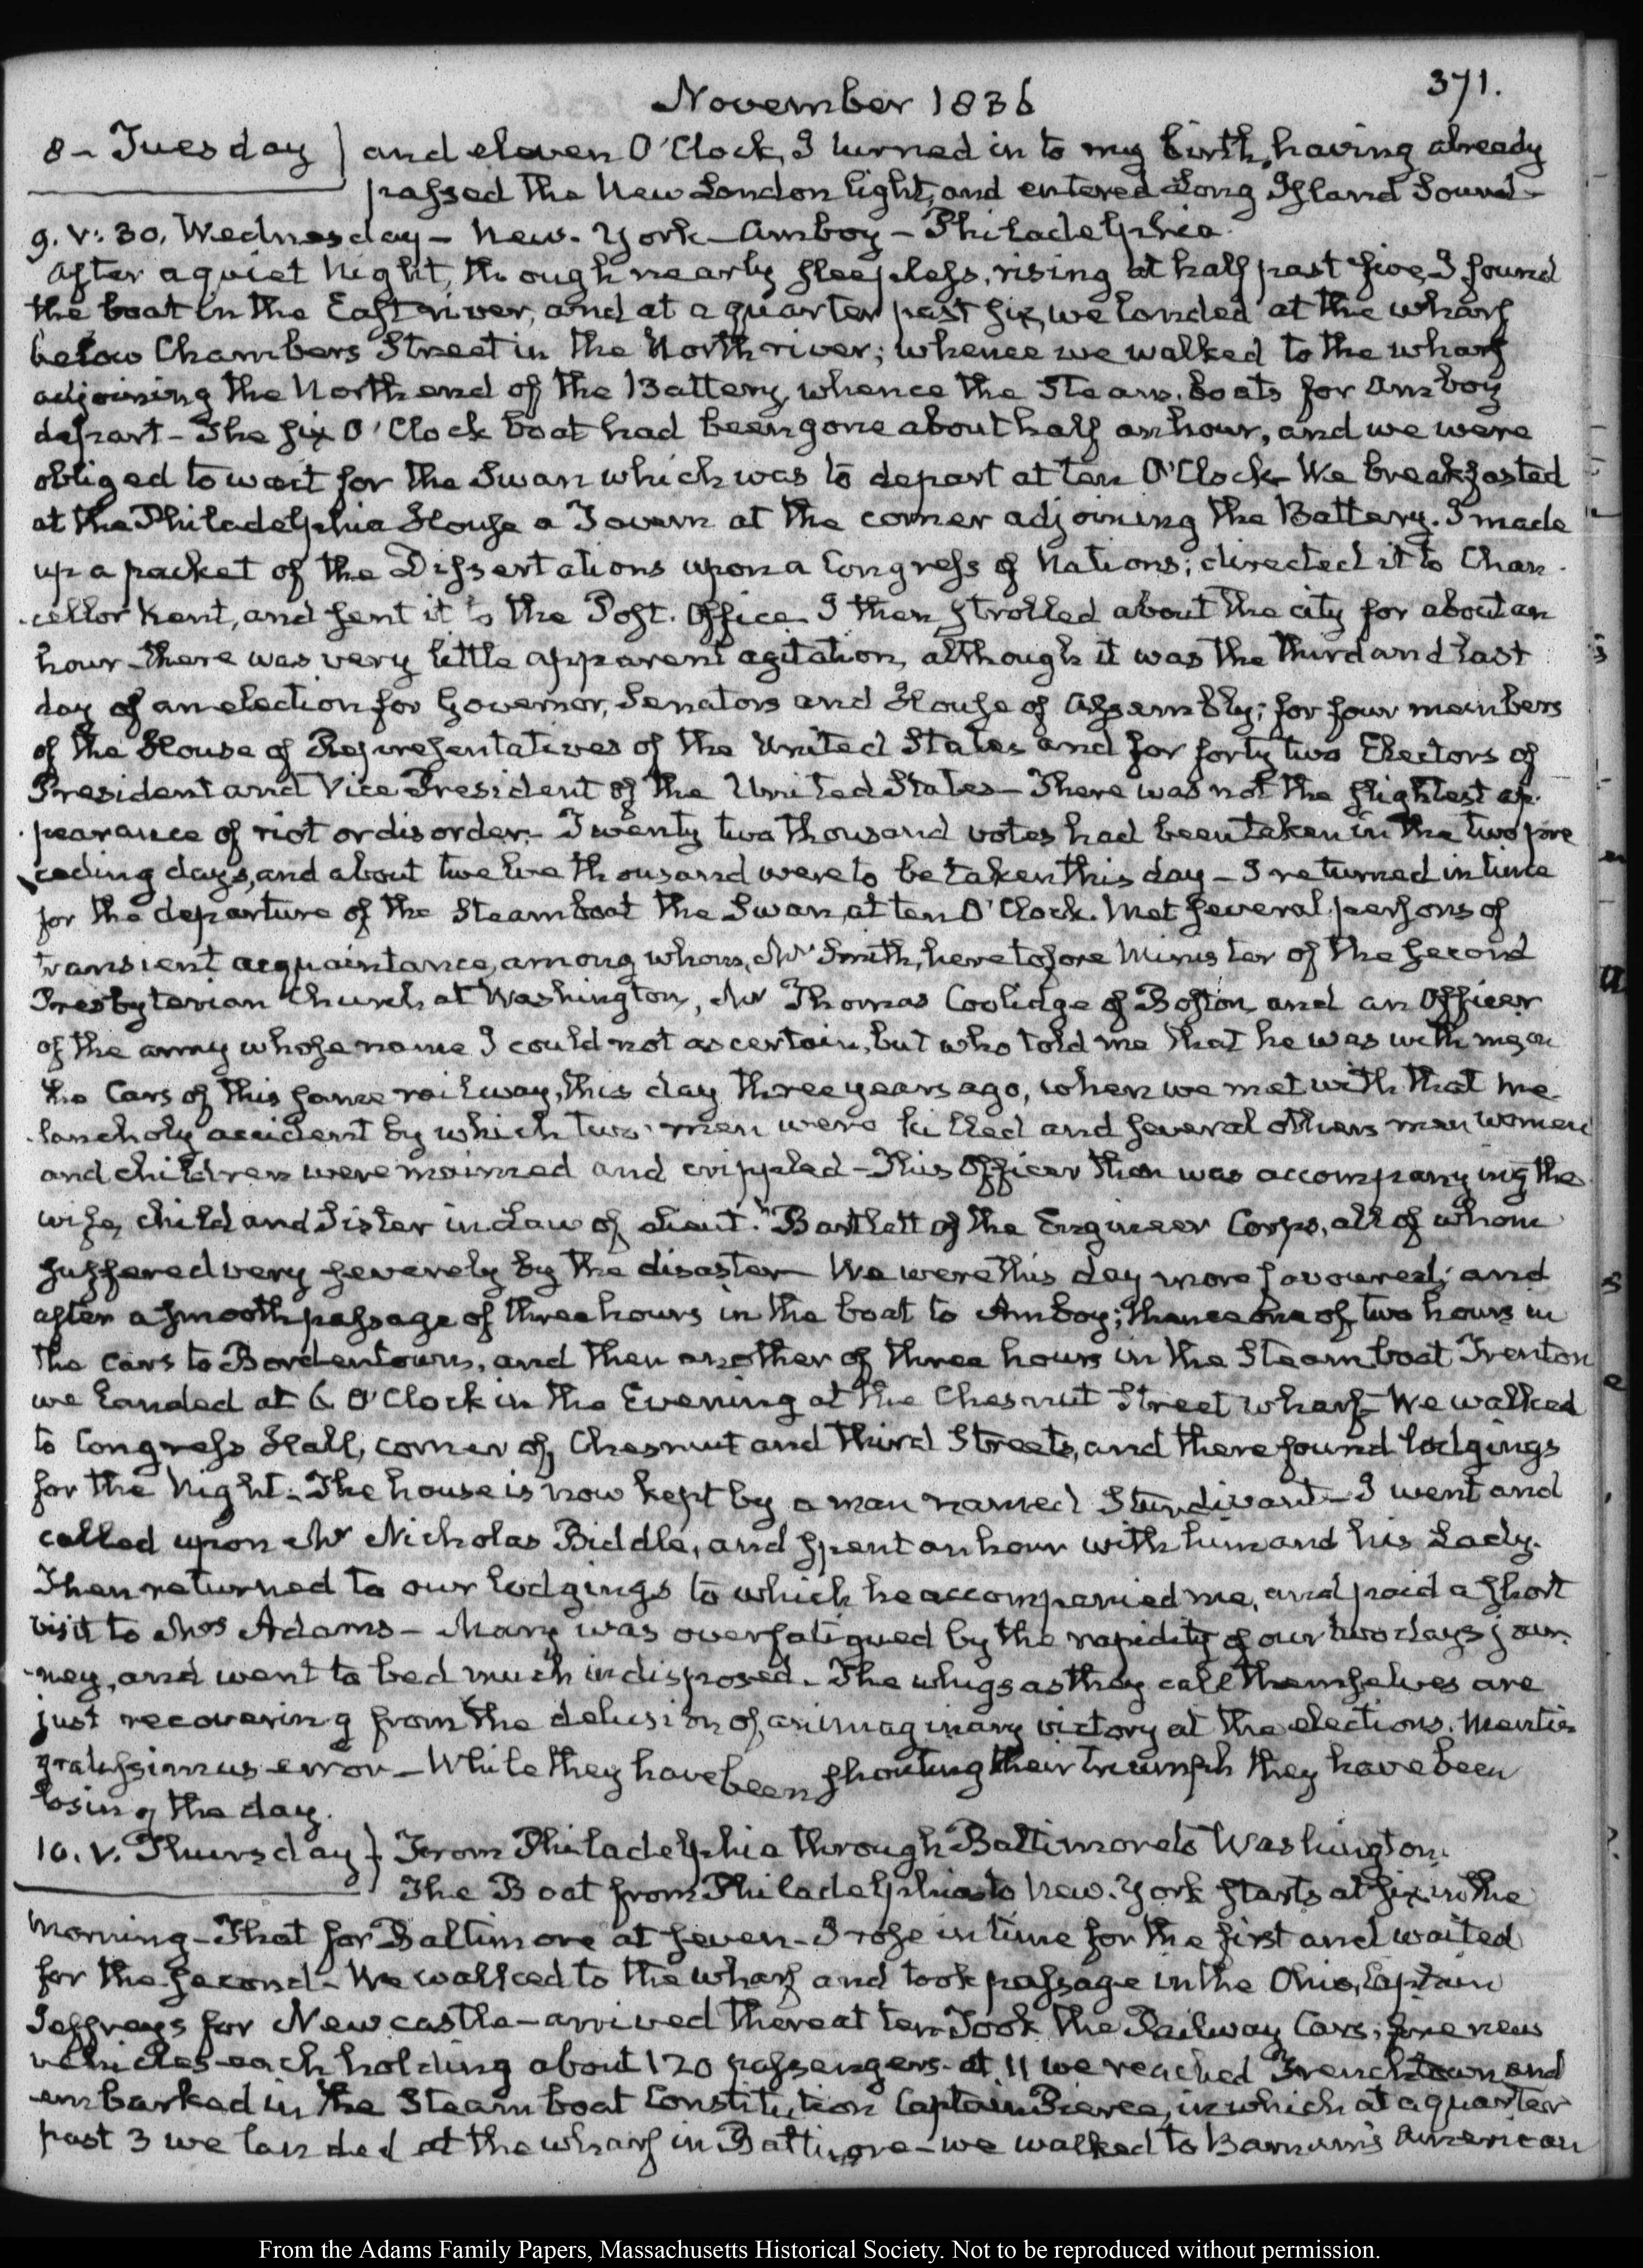 371.
November 1836
8 - Tuesday } and eleven O'Clock, I turned in to my birth, having already
passed the New London light, and entered Long Island Sound -
9. V: 30. Wednesday - New-York - Amboy - Philadelphia.
After a quiet Night, though nearly sleepless, rising at half past five, I found
the boat in the East river, and at a quarter past six, we landed at the wharf
below Chambers Street in the North river; whence we walked to the wharf
adjoining the North end of the Battery, whence the Steam-boats for Amboy
depart - The six O'Clock boat had been gone about half an hour, and we were
obliged to wait for the Swan which was to depart at ten O'Clock - We breakfasted
at the Philadelphia House a Tavern at the corner adjoining the Battery. I made
up a packet of the Dissertations upon a Congress of Nations; directed it to Chan-
-cellor Kent, and sent it to the Post-Office. I then strolled about the city for about an
hour - there was very little apparent agitation, although it was the third and last
day of an election for Governor, Senators and House of Assembly; for four members
of the House of Representatives of the United States and for forty two Electors of
President and Vice President of the United States - There was not the slightest ap-
-pearance of riot or disorder. Twenty two thousand votes had been taken in the two pre
ceding days, and about twelve thousand were to be taken this day - I returned in time
for the departure of the Steamboat the Swan, at ten O'Clock. Met several persons of
transient acquaintance, among whom, Mr Smith, heretofore Minister of the second
Presbyterian Church at Washington, Mr Thomas Coolidge of Boston, and an Officer
of the army whose name I could not ascertain, but who told me that he was with me in
the Cars of this same railway, this day three years ago, when we met with that me-
-lancholy accident by which two men were killed and several others men women
and children were maimed and crippled - This Officer then was accompanying the
wife, child and Sister in Law of Lieut.t Bartlett of the Engineer Corps, all of whom
suffered very severely by the disaster - We were this day more favoured; and
after a smooth passage of three hours in the boat to Amboy; thence one of two hours in
the Cars to Bordentown, and then another of three hours in the Steamboat Trenton
we landed at 6 O'Clock in the Evening at the Chesnut Street wharf - We walked
to Congress Hall, corner of Chesnut and Third Streets, and there found lodgings
for the Night. The house is now kept by a man named Sturdivant - I went and
called upon Mr Nicholas Biddle, and spent an hour with him and his Lady.
Then returned to our lodgings to which he accompanied me, and paid a short
visit to Mrs Adams - Mary was overfatigued by the rapidity of our two days jour-
-ney, and went to bed much indisposed. The whigs as they call themselves are
just recovering from the delusion of an imaginary victory at the elections. Mentis
gratissimus error - While they have been shouting their triumph they have been
losing the day.
10. V. Thursday } From Philadelphia through Baltimore to Washington.
The Boat from Philadelphia to New-York starts at six in the
Morning - That for Baltimore at seven - I rose in time for the first and waited
for the second - We walked to the wharf and took passage in the Ohio, Captain
Jeffreys for Newcastle - arrived there at ten. Took the Railway Cars; fine new
vehicles each holding about 120 passengers - at 11 we reached Frenchtown and
embarked in the Steamboat Constitution Captain Pierce, in which at a quarter
past 3 we landed at the wharf in Baltimore - we walked to Barnum's American
From the Adams Family Papers, Massachusetts Historical Society. Not to be reproduced without permission.